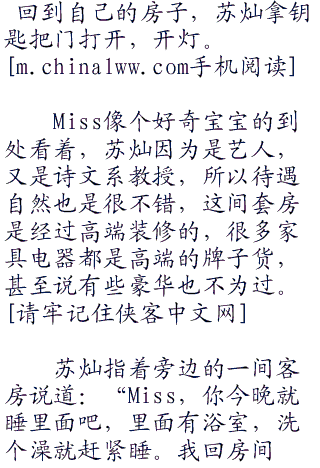 回到自己的房子，苏灿拿钥
匙把门打开，开灯。
[m.chinalww.com手机阅读]
Miss像个好奇宝宝的到
处看着，苏灿因为是艺人，
又是诗文系教授，所以待遇
自然也是很不错，这间套房
是经过高端装修的，很多家
具电器都是高端的牌子货，
甚至说有些豪华也不为过。
[请牢记住侠客中文网]
苏灿指着旁边的一间客
房说道：“Miss，你今晚就
睡里面吧，里面有浴室，洗
个澡就赶紧睡。我回房间